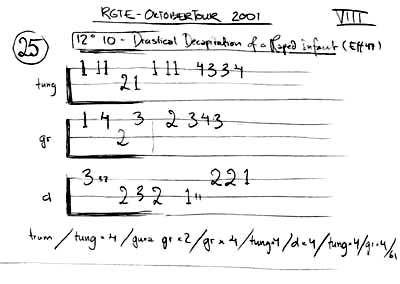 RGTE - OCTOBERTOUR 2001 VIII
25 12° 10 - Drastical Decapitation of a Raped infant (Eff 47)
1 11 1 11 4 3 3 4
tung 2 1
1 4 3 2 3 4 3
gr 2
3 2 2 1
d 2 3 2 1 "
/ tung = 4 / gr = 2 / gr x 4 / tung 4 / d = 4 / tung = 4 / gr = 4 /